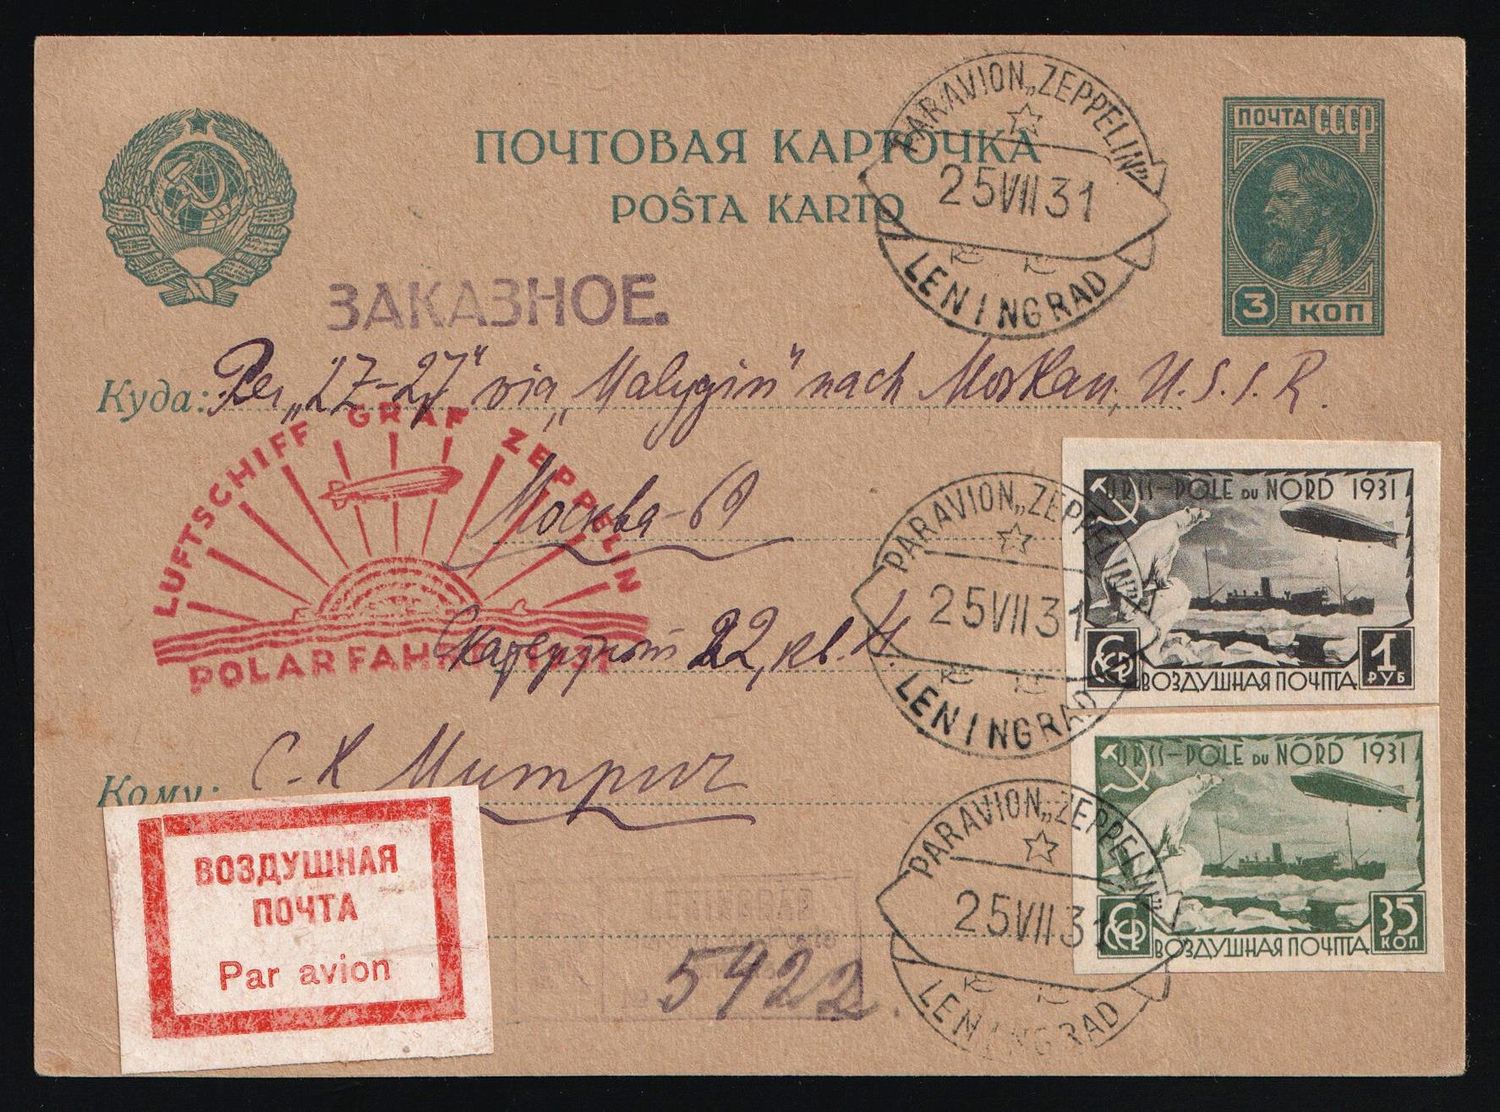 ПОЧТОВАЯ КАРТОЧКА
POŜTA KARTO
ПОЧТА СССР
3 КОП
PARAVION „ZEPPELIN"
25 VII 31
LENINGRAD
ЗАКАЗНОЕ.
Куда: Per „ 27-27" via „Malygin" nach Moskau, U.S.S.R.
LUFTSCHIFF GRAF ZEPPELIN
POLARFAHRT 1931
Москва-69
22, кв. 4.
С. К.
Кому:
PARAVION „ZEPPELIN"
25 VII 31
LENINGRAD
URSS-POLE DU NORD 1931
СССР
ВОЗДУШНАЯ ПОЧТА
1 РУБ
PARAVION „ZEPPELIN"
25 VII 31
LENINGRAD
URSS-POLE DU NORD 1931
СССР
ВОЗДУШНАЯ ПОЧТА
35 КОП
ВОЗДУШНАЯ
ПОЧТА
Par avion
LENINGRAD
5422